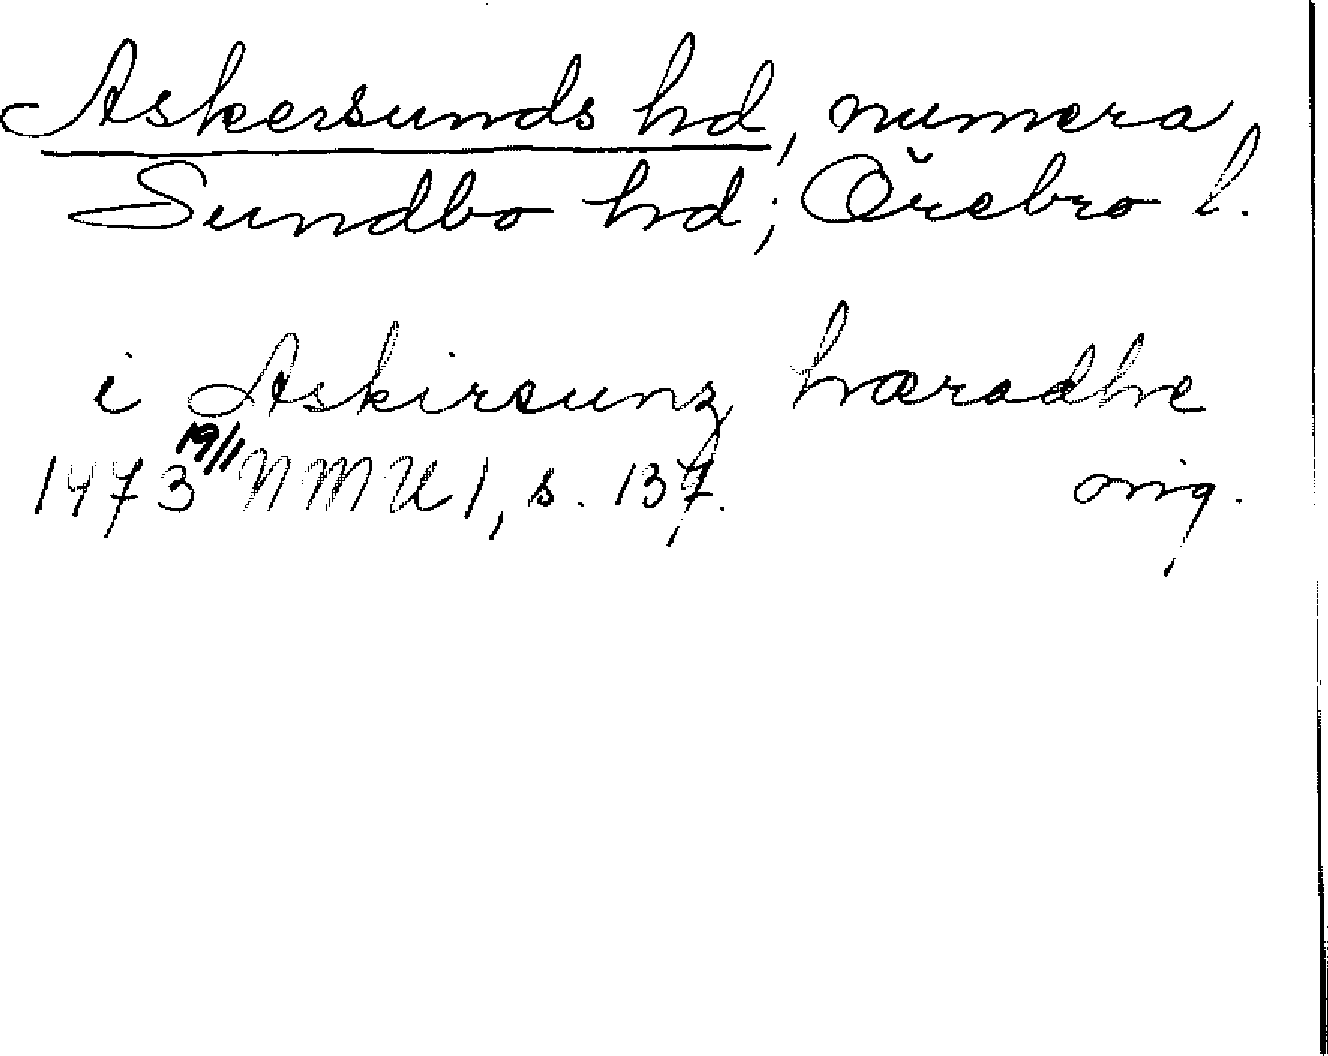 Askersunds hd, numera
Sundbo hd; Örebro l.
i Askirsunz hæradhe
1473 19/11 NMU 1, s. 137. orig.